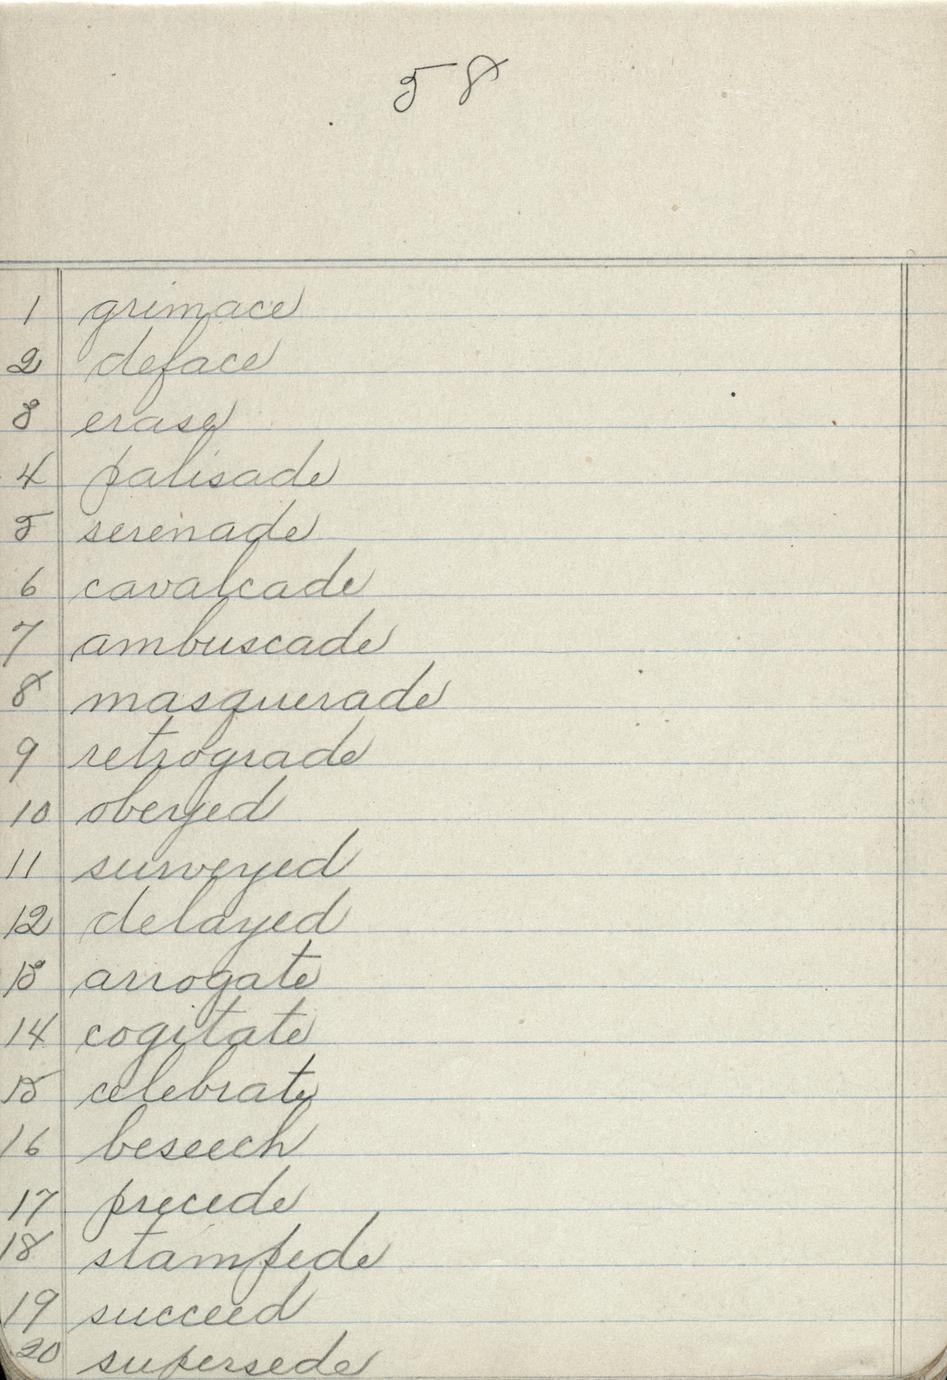 58
1 grimace
2 deface
3 erase
4 palisade
5 serenade
6 cavalcade
7 ambuscade
8 masquerade
9 retrograde
10 obeyed
11 surveyed
12 delayed
13 arrogate
14 cogitate
15 celebrate
16 beseech
17 precede
18 stampede
19 succeed
20 supersede